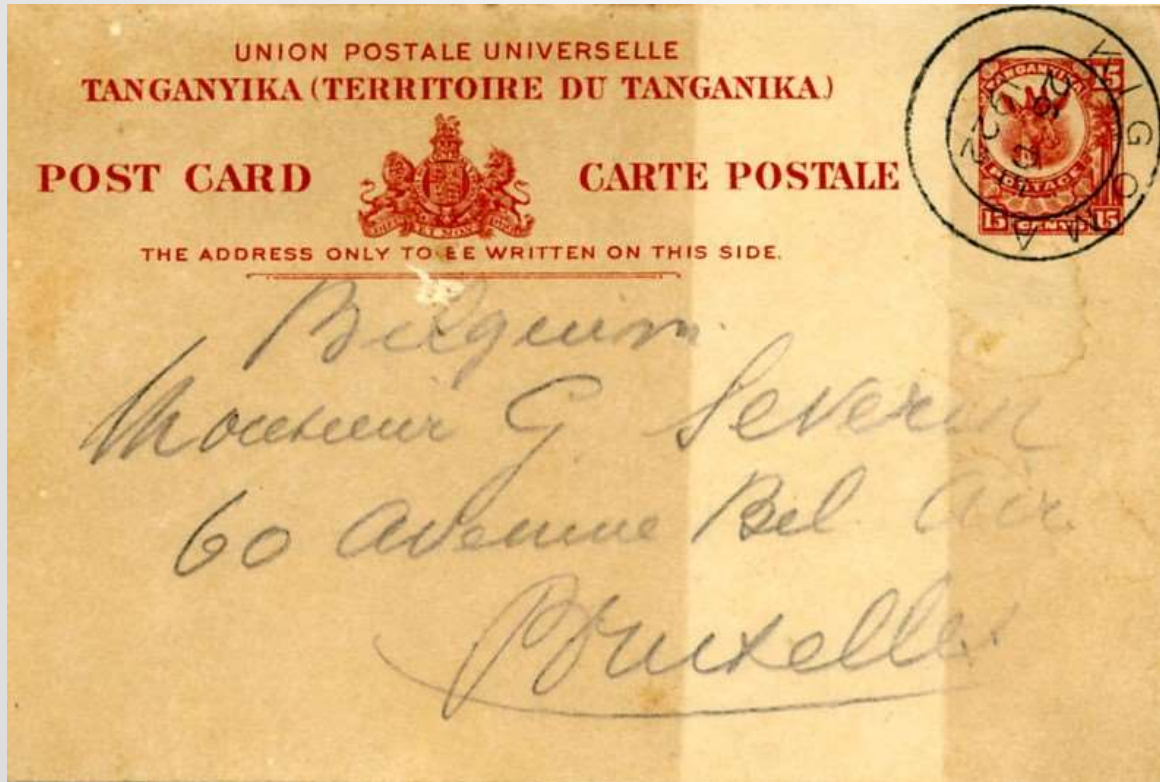 UNION POSTALE UNIVERSELLE
TANGANYIKA (TERRITOIRE DU TANGANIKA.)
POST CARD CARTE POSTALE
THE ADDRESS ONLY TO BE WRITTEN ON THIS SIDE.
TANGANYIKA
POSTAGE
15 CENTS 15
Belgium
Monsieur G Severin
60 Avenue Bel Air
Bruxelles